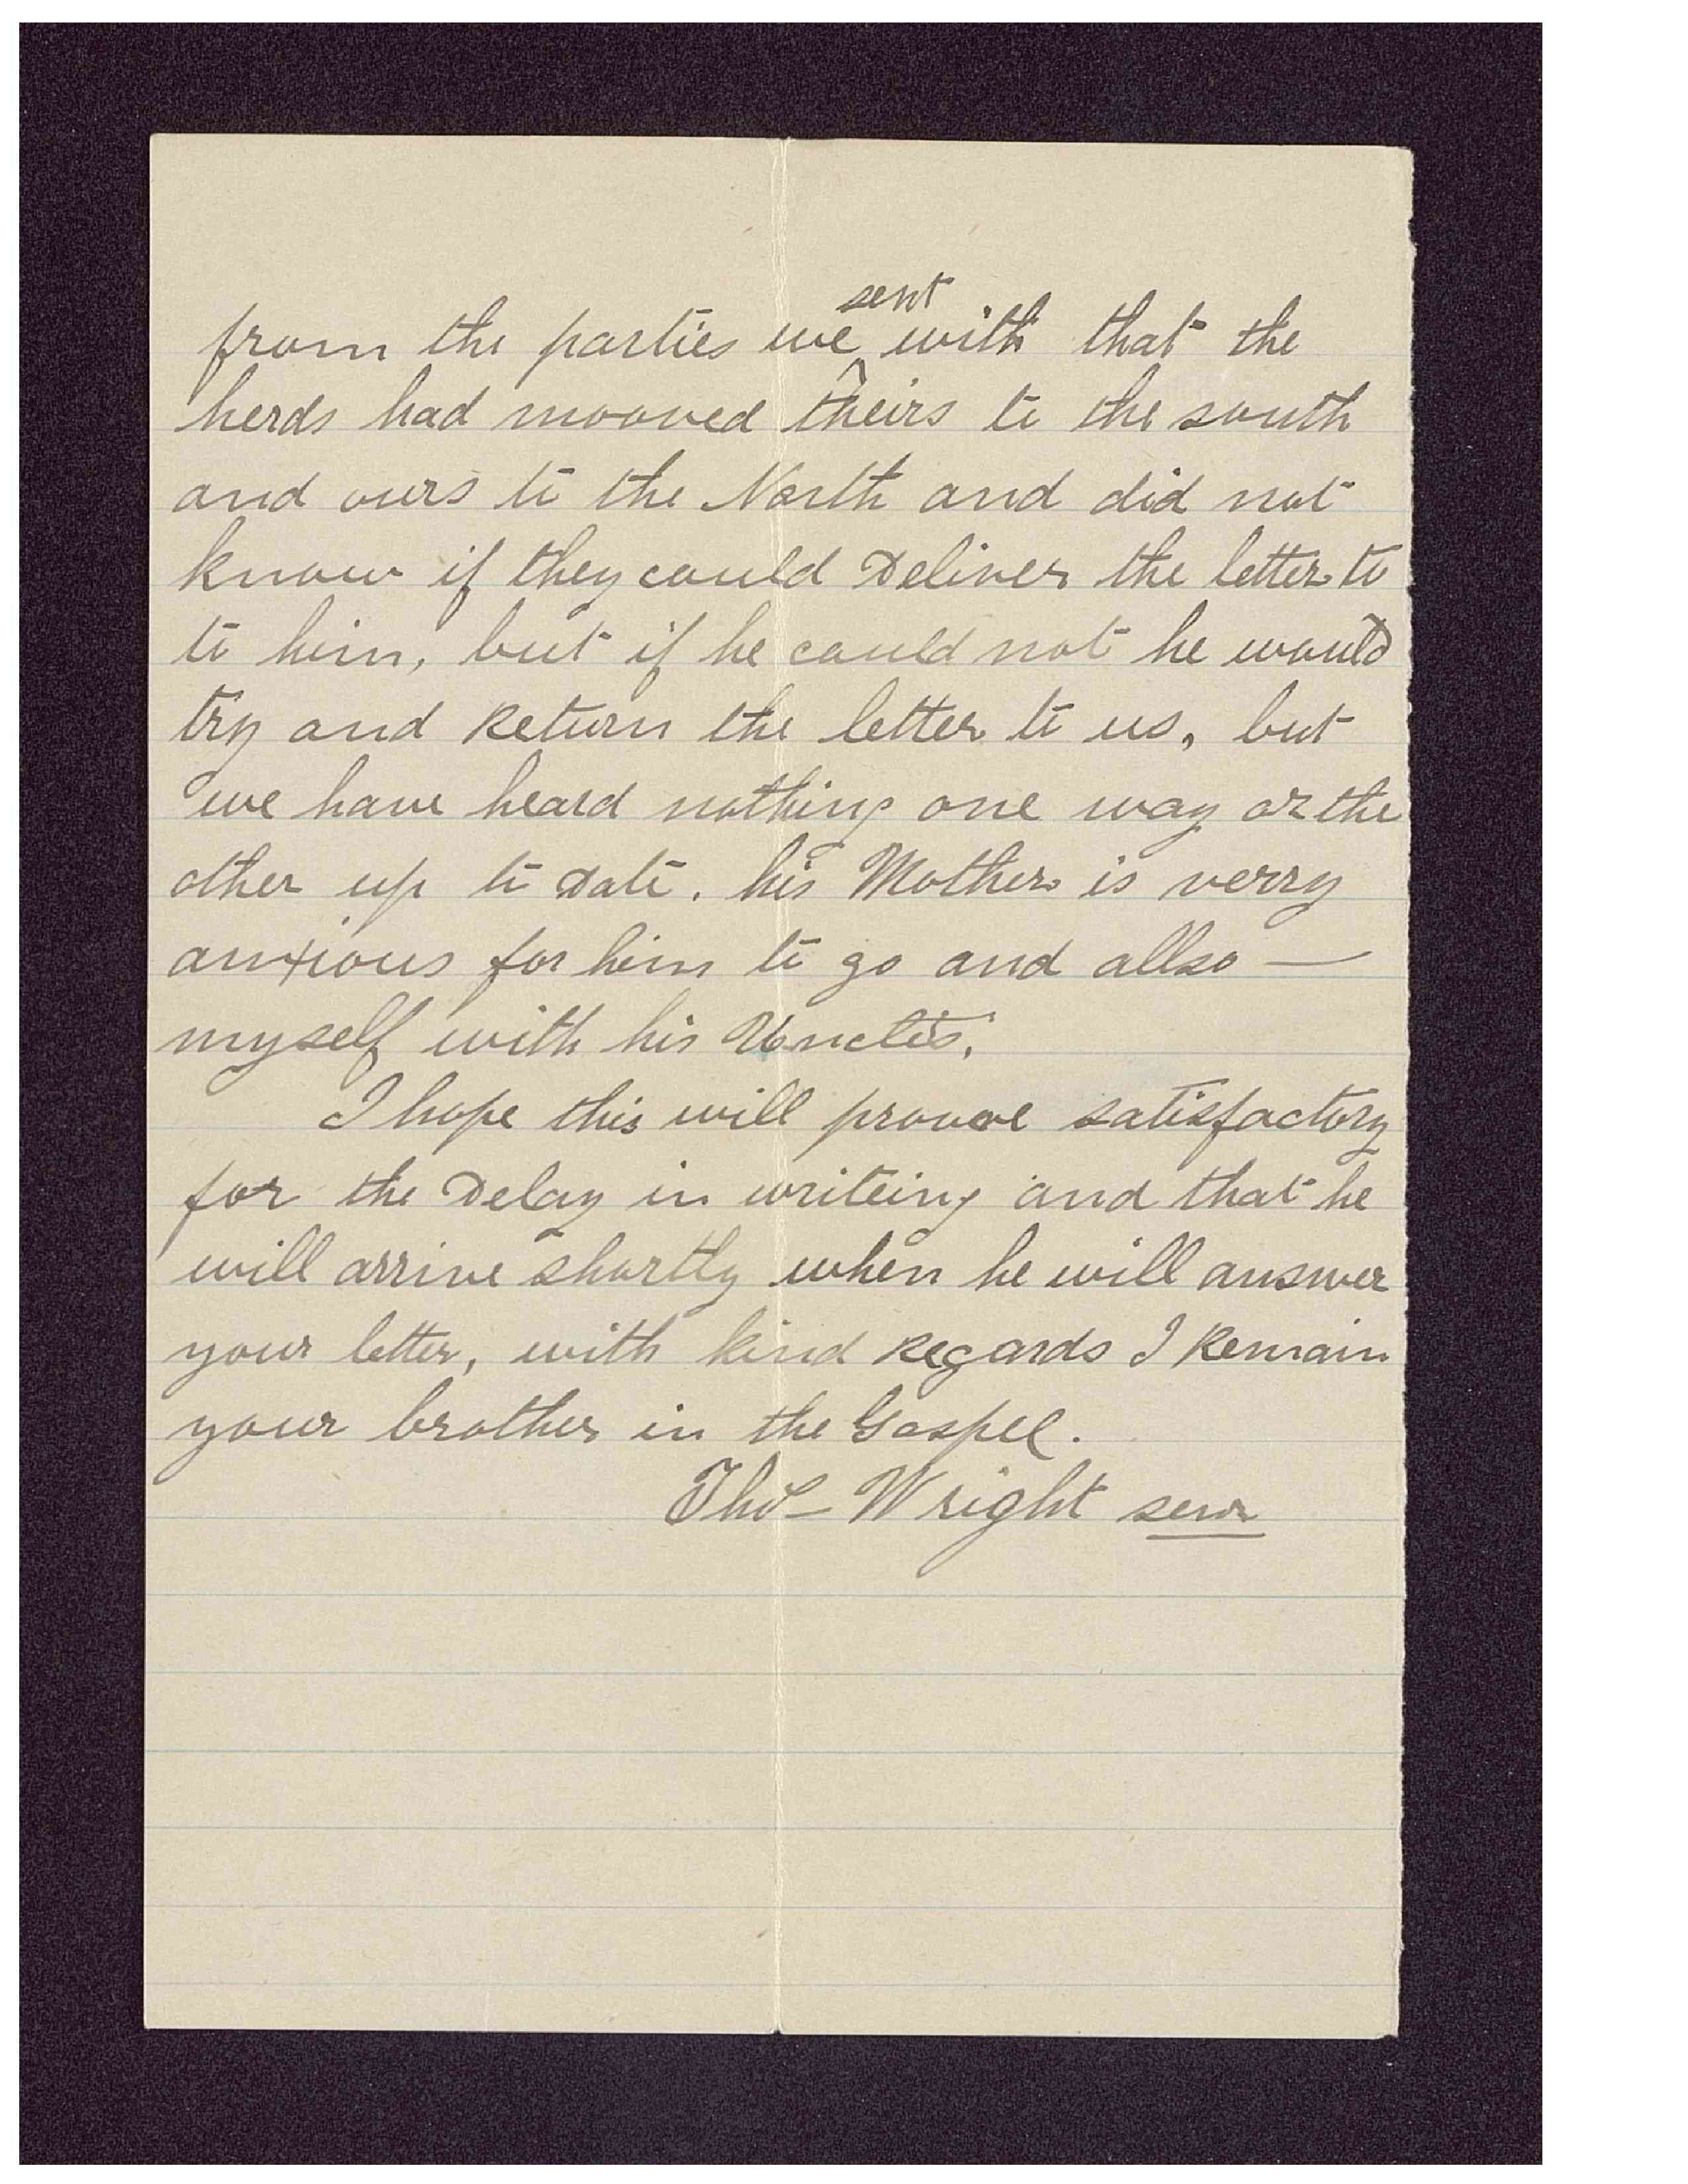 from the parties we ^sent with that the
herds had mooved theirs to the south
and ours to the North and did not
know if they could Deliver the letter to
to him, but if he could not he would
try and Return the letter to us, but
we have heard nothing one way or the
other up to Date. his Mother is verry
anxious for him to go and allso —
myself with his Uncles.
I hope this will proove satisfactory
for the Delay in writeing and that he
will arrive shortly when he will answer
your letter, with kind Regards I Remain
your brother in the Gospel.
Thos Wright senr